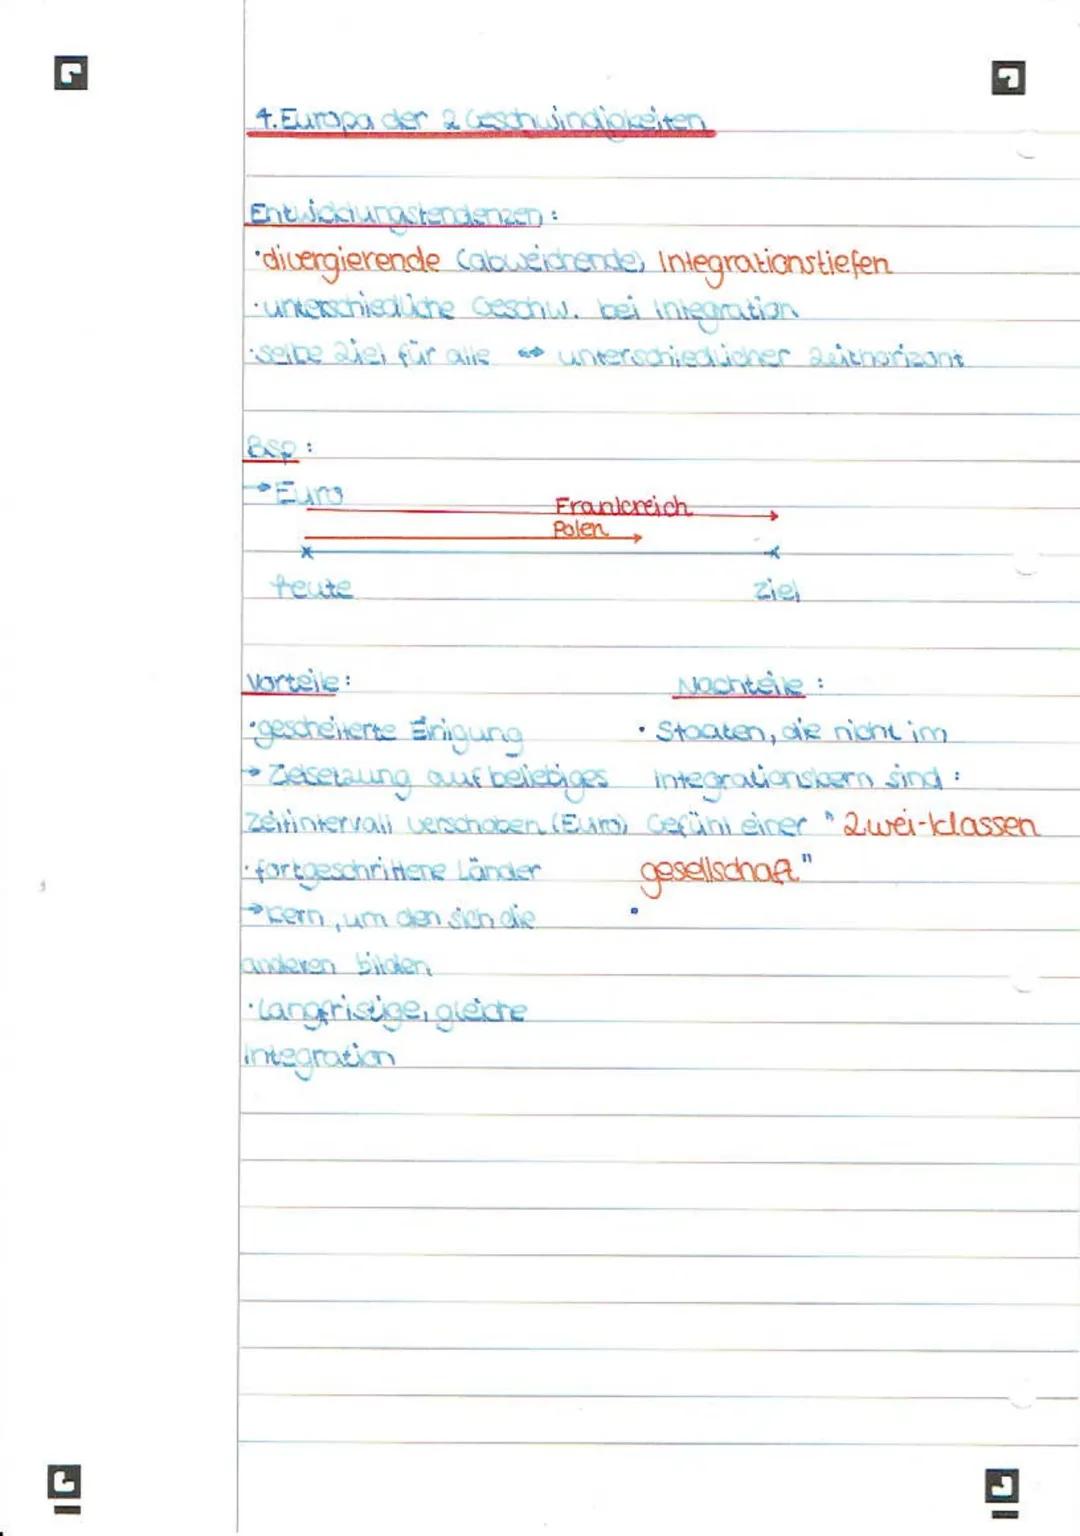 4. Europa der 2 Geschwindigkeiten
Entwicklungstendenzen:
·divergierende (abweichende) Integrationstiefen
·unterschiedliche Geschw. bei Integration
·selbe Ziel für alle ↔ unterschiedlicher Zeithorizont
Bsp:
→ Euro
Frankreich
Polen
heute
Ziel
Vorteile:
·gescheiterte Einigung
→ Zielsetzung auf beliebiges
Zeitintervall verschoben (Euro)
·fortgeschrittene Länder
→ Kern, um den sich die
anderen bilden
·Langfristige, gleiche
Integration
Nachteile:
· Staaten, die nicht im
Integrationskern sind:
Gefühl einer "Zwei-klassen
gesellschaft"
·